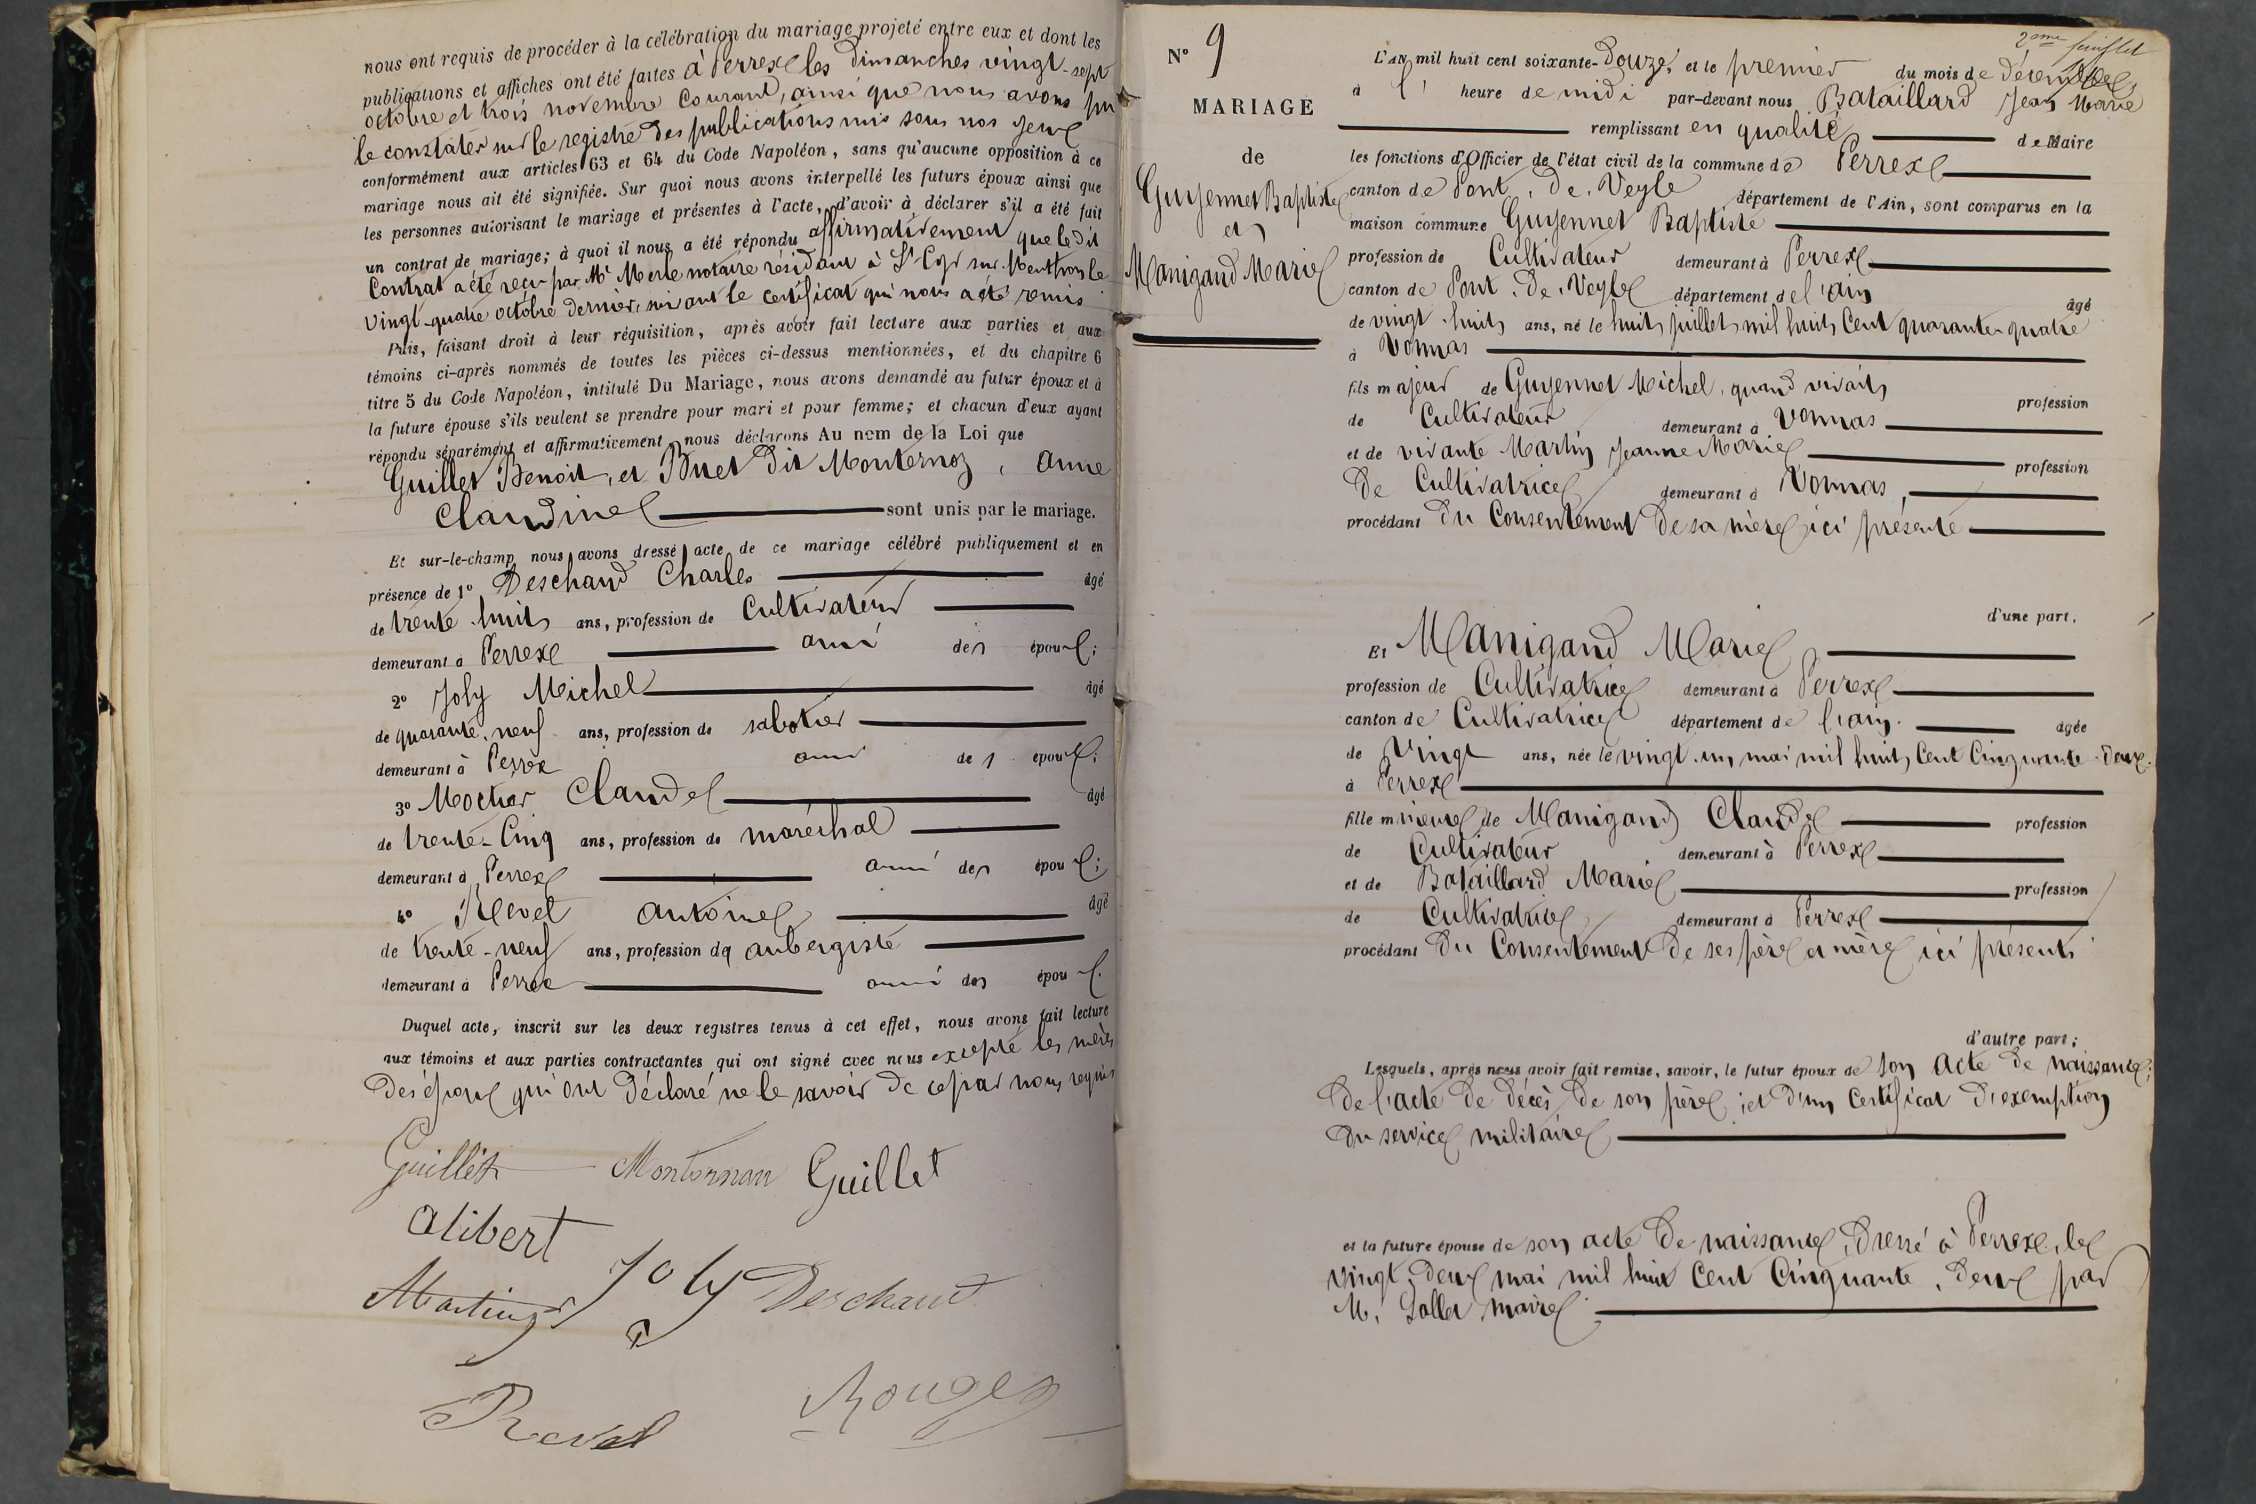 nous ont requis de procéder à la célébration du mariage projeté entre eux et dont les
publications et affiches ont été faites à Perrex les dimanches vingt-sept
octobre et trois novembre courant, ainsi que nous avons pu
le constater sur le registre des publications mis sous nos yeux
conformément aux articles 63 et 64 du Code Napoléon, sans qu'aucune opposition à ce
mariage nous ait été signifiée. Sur quoi nous avons interpellé les futurs époux ainsi que
les personnes autorisant le mariage et présentes à l'acte, d'avoir à déclarer s'il a été fait
un contrat de mariage; à quoi il nous a été répondu affirmativement que le dit
Contrat a été reçu par Me Merle notaire résidant à St Cyr sur Menthon le
vingt-quatre octobre dernier, suivant le certificat qui nous a été remis
Puis, faisant droit à leur réquisition, après avoir fait lecture aux parties et aux
témoins ci-après nommés de toutes les pièces ci-dessus mentionnées, et du chapitre 6
titre 5 du Code Napoléon, intitulé Du Mariage, nous avons demandé au futur époux et à
la future épouse s'ils veulent se prendre pour mari et pour femme; et chacun d'eux ayant
répondu séparément et affirmativement, nous déclarons Au nom de la Loi que
Guillet Benoit, et Buet dit Monternoz, Anne
Claudine sont unis par le mariage.
Et sur-le-champ nous avons dressé acte de ce mariage célébré publiquement et en
présence de 1° Deschand Charles âgé
de trente huit ans, profession de Cultivateur
demeurant à Perrex ami des époux;
2° Joly Michel âgé
de quarante neuf ans, profession de sabotier
demeurant à Perrex ami des époux;
3° Mochon Claude âgé
de trente-Cinq ans, profession de maréchal
demeurant à Perrex ami des époux;
4° Revel Antoine âgé
de trente-neuf ans, profession de aubergiste
demeurant à Perrex ami des époux.
Duquel acte, inscrit sur les deux registres tenus à cet effet, nous avons fait lecture
aux témoins et aux parties contractantes qui ont signé avec nous excepté les mères
des époux qui ont déclaré ne le savoir de ce par nous requis
Guillet Guillet
Alibert
Martin Joly Deschand
Revel Rouge
2eme feuillet
N° 9
MARIAGE
de
Guyennet Baptiste
et
Manigand Marie
L'AN mil huit cent soixante-Douze, et le premier du mois de Décembre,
à l' heure de midi par-devant nous Bataillard Jean Marie
remplissant en qualité de Maire
les fonctions d'Officier de l'état civil de la commune de Perrex
canton de Pont-De-Veyle département de l'Ain, sont comparus en la
maison commune Guyennet Baptiste
profession de Cultivateur demeurant à Perrex
canton de Pont-De-Veyle département de l'ain âgé
de vingt-huit ans, né le huit juillet mil huit Cent quarante-quatre
à Vonnas
fils majeur de Guyennet Michel, quand vivait, profession
de Cultivateur demeurant à Vonnas
et de vivante Martin Jeanne Marie profession
De Cultivatrice demeurant à Vonnas,
procédant du Consentement de sa mère ici présente
d'une part.
Et Manigand Marie
profession de Cultivatrice demeurant à Perrex
canton de Cultivatrice département de l'ain. âgée
de Vingt ans, née le vingt-un mai mil huit Cent Cinquante-deux
à Perrex
fille mineure de Manigand Claude profession
de Cultivateur demeurant à Perrex
et de Bataillard Marie profession
de Cultivatrice demeurant à Perrex
procédant du Consentement de ses père et mère ici présents
d'autre part;
Lesquels, après nous avoir fait remise, savoir, le futur époux de son acte de naissance;
de l'acte de décès de son père; et d'un Certificat d'exemption
du service militaire
et la future épouse de son acte de naissance dressé à Perrex, le
vingt-deux mai mil huit cent Cinquante-deux par
M. maire